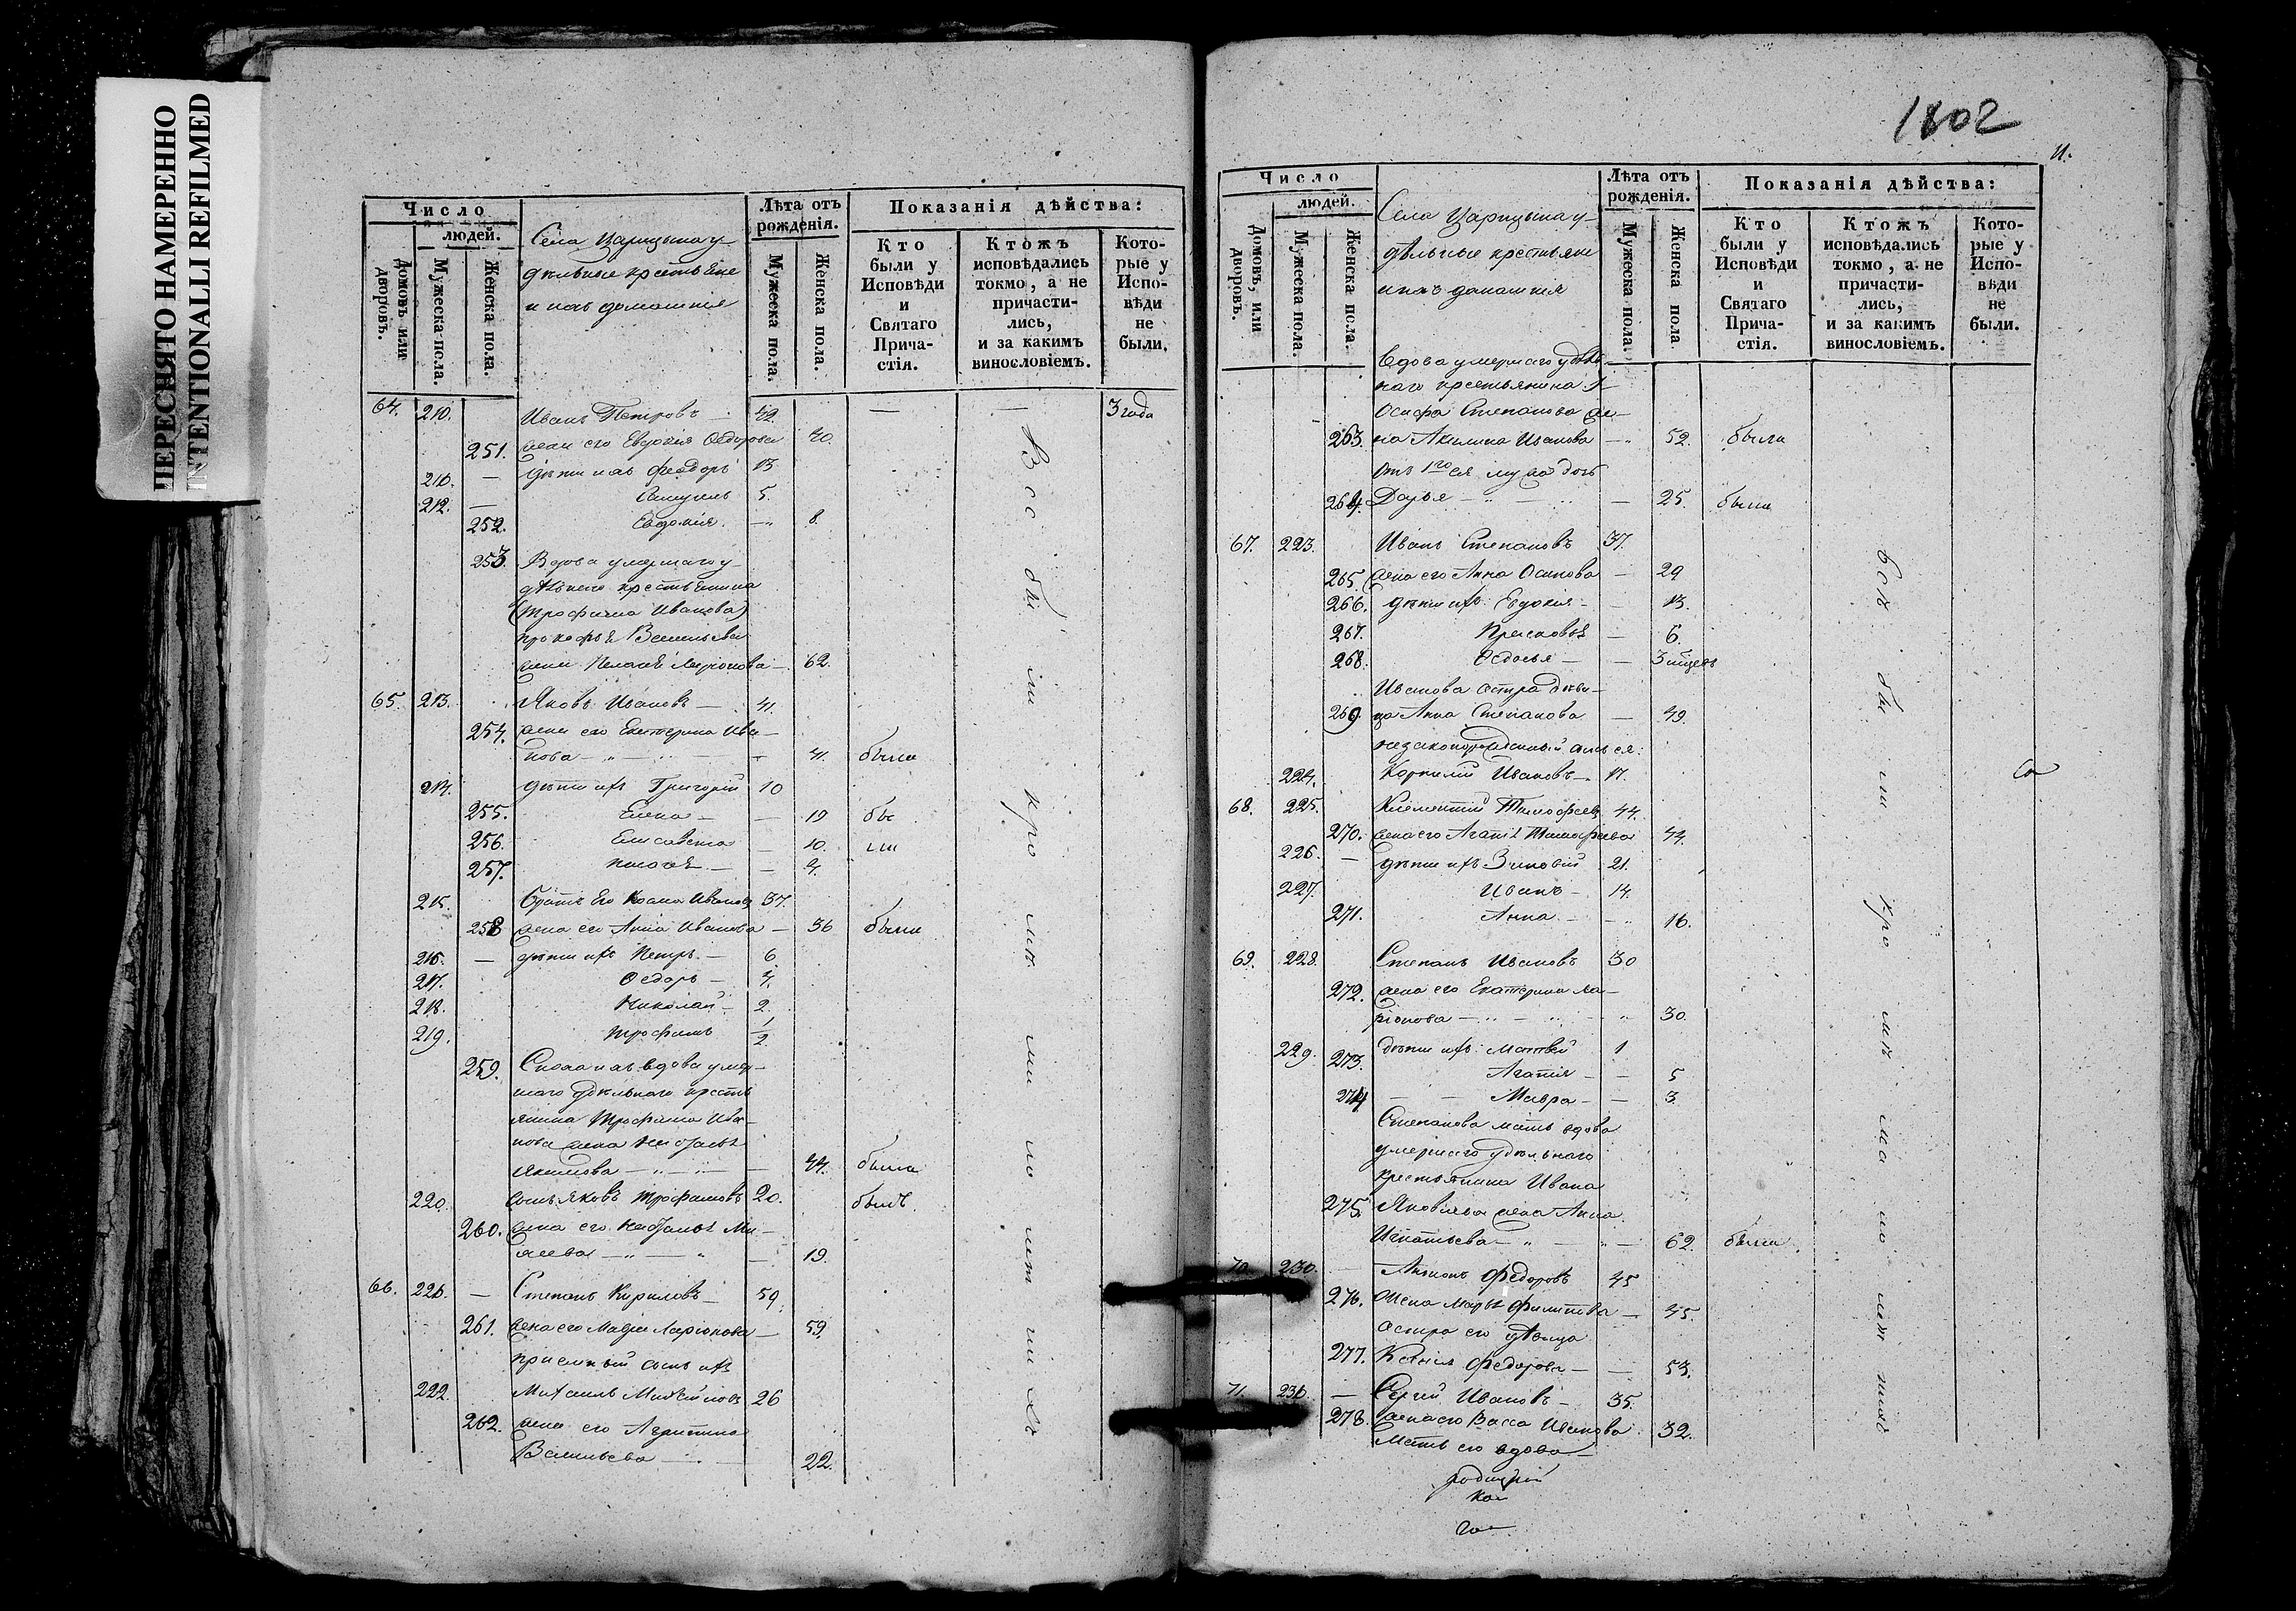 ПЕРЕСНЯТО НАМЕРЕННО
INTENTIONALLI REFILMED
Число
людей.
Домовъ или дворовъ.
Мужеска пола.
Женска пола.
Села Царицына у-
дѣльные крестьяне
и ихъ домашнія
Лѣта отъ рожденія.
Мужеска пола.
Женска пола.
Показанія дѣйства:
Кто были у Исповѣди и Святаго Прича-стія.
Ктожъ исповѣдались токмо, а не причасти-лись, и за какимъ винословіемъ.
Кото-рые у Испо-вѣди не были.
64. 210. Иванъ Петровъ — 42. — — 3 года
251. жена его Евдокія Ѳедорова 40.
211. — дѣти ихъ Феодоръ 13
212. — Самуилъ 5.
252. Евдокія — 8.
253. Вдова умершаго у-
дѣльнаго крестьянина
(Трофима Иванова)
Прокофья Васильева
жена Пелагія Ларіонова — 62.
65. 213. Яковъ Ивановъ — 41.
254. жена его Екатерина Ива-
нова — — 41. была
214. дѣти ихъ Григорій 10
255. Елена — — 19 бы
256. Елисавета — 10. ли
257. — — 4.
215. братъ его Козма Ивановъ 37.
258 жена его Анна Иванова — 36 была
216. — дѣти ихъ Петръ — 6.
217. Ѳедоръ — 4.
218. Николай — 2.
219. Трофимъ 1/2
259. Сноха ихъ вдова умер-
шаго удѣльнаго кресть-
янина Трофима Ива-
нова жена Наталья
Якимова — — 44. была
220. сынъ Яковъ Трофимовъ 20. былъ.
260. жена его Наталья Ми-
— 19.
66. 221. — Степанъ Кириловъ — 59.
261. жена его Мавра Ларіонова — 59.
пріемный сынъ ихъ
222. Михаилъ 26
262. жена его
Васильева — 22.
Всѣ были кромѣ малолѣтнихъ
1802
11.
Число
людей.
Домовъ, или дворовъ.
Мужеска пола.
Женска пола.
Села Царицына у-
дѣльные крестьяне
и ихъ домашнія
Лѣта отъ рожденія.
Мужеска пола.
Женска пола
Показанія дѣйства:
Кто были у Исповѣди и Святаго Прича-стія.
Ктожъ исповѣдались токмо, а не причасти-лись, и за какимъ винословіемъ.
Кото-рые у Испо-вѣди не были.
Вдова умершаго удѣль-
наго крестьянина
Осифа Степанова же-
263. на Акилина Иванова — 52. была
отъ 1го ея мужа дочь
264. Дарья — — 25. была
67. 223. Иванъ Степановъ 37.
265. жена его Анна Осипова — 29
266. дѣти ихъ Евдокія — — 13.
267. Прасковья — 6.
268. Ѳедосья — — 3 мѣсяцевъ
Иванова сестра дѣви-
269. ца Анна Степанова — 49.
незаконорожденный сынъ ея:
224. Корнилій Ивановъ — 17.
68. 225. Климентій Тимофеевъ 44.
270. жена его Агапія Тимофеева 44.
226. — дѣти ихъ Зиновій 21.
227. Иванъ — 14.
271. Анна — 16.
69. 228. Степанъ Ивановъ 30
272. жена его Екатерина Ла-
ріонова — — 30.
229. дѣти ихъ: Матвей 1
273. Агапія — — 5
274 — — Мавра — — 3.
Степанова мать вдова
умершаго удѣльнаго
крестьянина Ивана
275. Яковлева жена Анна
Игнатьева — — 62. была
70. 230. — Ѳедоровъ 45
276. Жена Марья Филипова — 45.
сестра его дѣвица
277. Ксенія Федорова — — 53.
71. 231. — Сергій Ивановъ — 35.
278. жена его Васса Иванова 32.
Мать его вдова
Всѣ были кромѣ малолѣтнихъ